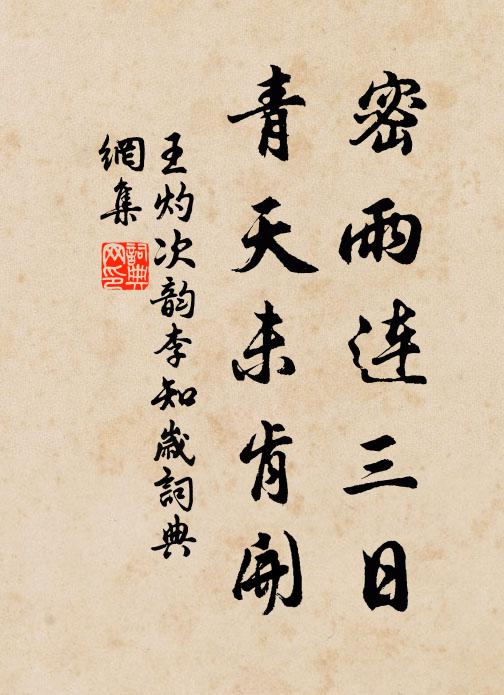 密雨连三日
青天未肯開
王灼次韵李知歲詞典
網集
詞典
网印